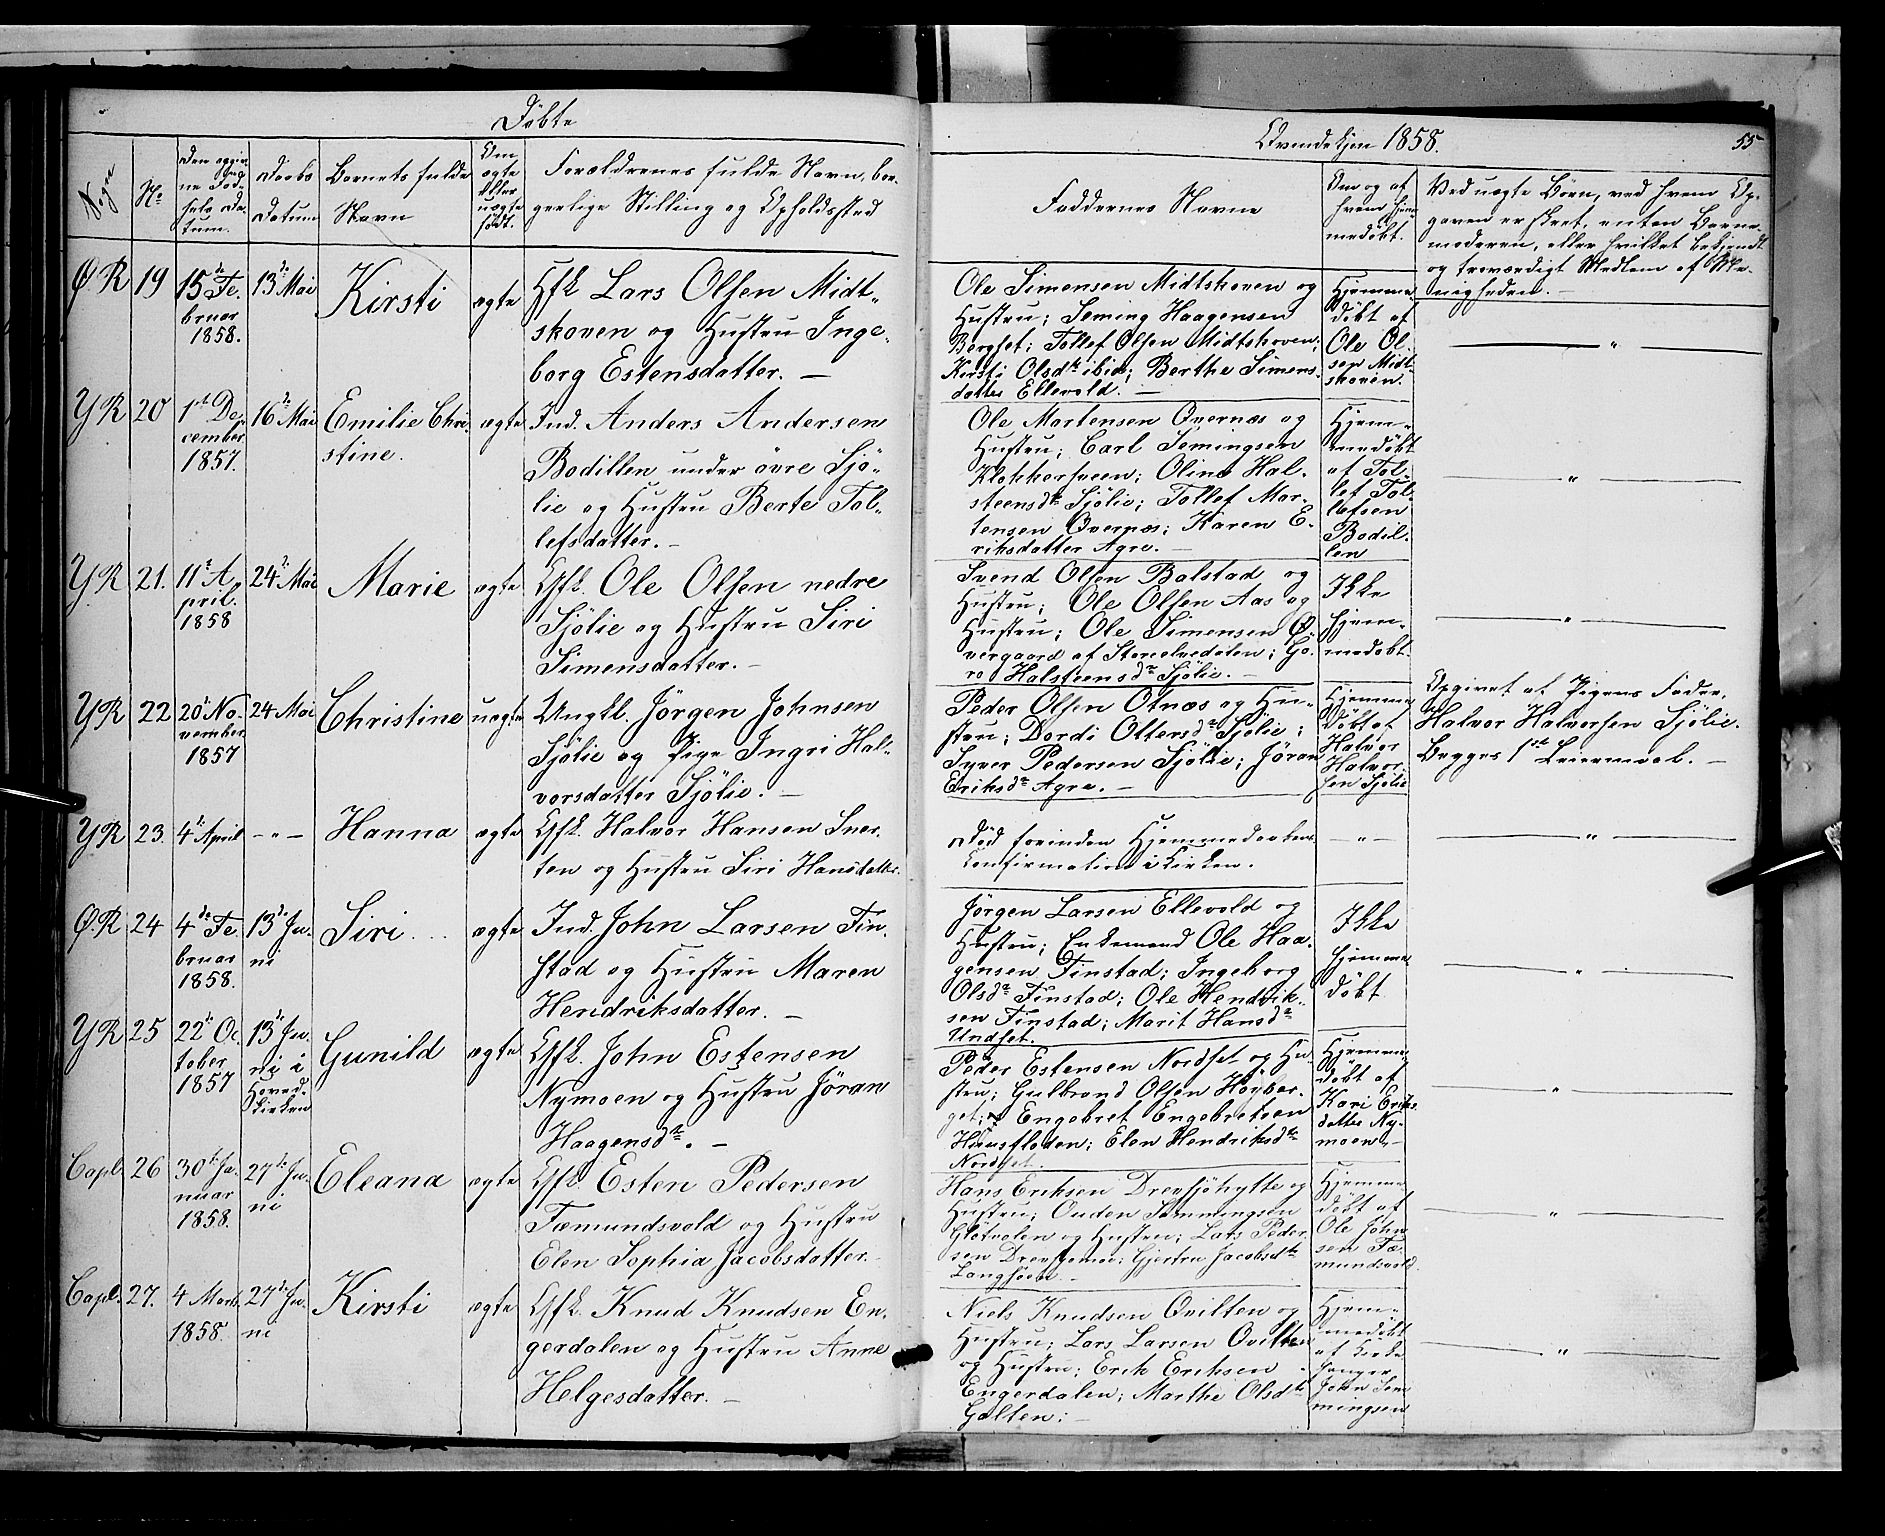 Döbte
Qvindekjön 1858.
55
Sogne
No
Den opgiv-
ne Föd-
sels Da-
tum.
Daabs
Datum
Barnets fulde
Navn
Om
ægte
eller
uægte
födt.
Forældrenes fulde Navn, bor-
gerlige Stilling og Opholdssted
Faddernes Navne
Om og af
hvem hjem-
medöbt.
Ved uægte Börn, ved hvem Op-
gaven er skeet, enten Barne-
moderen, eller hvilket bekjendt
og troværdigt Medlem af Me-
nigheden. —
Ø R 19
15de Fe-
bruar
1858.
13de Mai
Kirsti
ægte
Gfk Lars Olsen Midt-
skoven og Hustru Inge-
borg Estensdatter. —
Ole Simensen Midtskoven og
Hustru; Seming Haagensen
Bergset; Tollef Olsen Midtskoven;
Kirsti Olsdtr ibid; Berthe Simens-
datter Ellevold. —
Hjemme-
döbt af
Ole Ol-
sen Midt-
skoven.
— " —
Y R 20
1st De-
cember
1857.
16de Mai
Emilie Chri-
stine.
ægte
Ind. Anders Andersen
Bodillen under övre Sjö-
lie og Hustru Berte Tol-
lefsdatter. —
Ole Mortensen Qvernæs og
Hustru; Carl Semingsen
Klokkersveen; Oline Hal-
steensdtr Sjölie; Tollef Mor-
tensen Qvernæs; Karen E-
riksdatter Agre. —
Hjem-
medöbt
af Tol-
lef Tol-
lefsen
Bodil-
len
— " —
Y R 21.
11te A-
pril.
1858
24de Mai
Marie
ægte
Gfk. Ole Olsen nedre
Sjölie og Hustru Siri
Simensdatter. —
Svend Olsen Balstad og
Hustru; Ole Olsen Aas og
Hustru; Ole Simensen Ø-
vergaard af Storelvedalen; Gö-
ro Halsteensdtr Sjölie. —
Ikke
hjem-
medöbt.
— " —
Y R 22
20de No-
vember
1857
24 Mai
Christine
uægte
Ungkl. Jörgen Johnsen
Sjölie og Pige Ingri Hal-
vorsdatter Sjölie. —
Peder Olsen Otnæs og Hu-
stru; Dordi Ottersdtr Sjölie;
Syver Pedersen Sjölie; Jöran
Eriksdtr Agre. —
Hjemme-
döbt af
Halvor
Halvor-
sen Sjölie
Opgivet af Pigens Fader,
Halvor Halvorsen Sjölie.
Begges 1ste Leiermaal. —
Y R 23.
4de April
— " —
Hanna
ægte
Gfk. Halvor Hansen Sner-
ten og Hustru Siri Hansdatter.
Död forinden Hjemmedaabens
Confirmation i Kirken.
— " —
— " —
Ø. R 24
4de Fe-
bruar
1858.
13de Ju-
ni
Siri ...
ægte
Ind. John Larsen Fin-
stad og Hustru Maren
Hendriksdatter. —
Jörgen Larsen Ellevold og
Hustru; Enkemand Ole Haa-
gensen Finstad; Ingeborg
Olsdtr Finstad; Ole Hendrik-
sen Finstad; Marit Hansdtr
Undset.
Ikke
hjemme-
döbt
— " —
Y R 25
22de Oc-
tober
1857
13de Ju-
ni i
Hoved-
kirken
Gunild
ægte
Gfk. John Estensen
Nymoen og Hustru Jöran
Haagensdtr. —
Peder Estensen Nordset og Hu-
stru; Gulbrand Olsen Höyber-
get; Engebret Engebretsen
Elen Hendriksdtr
Nordset.
Hjemme-
döbt af
Kari Eriks-
datter Ny-
moen. —
— " —
Capl. 26
30te Ja-
nuar
1858.
27de Ju-
ni
Eleana
ægte
Gfk. Esten Pedersen
Fæmundsvold og Hustru
Elen Sophia Jacobsdatter. —
Hans Eriksen Drevsjöhytte og
Hustru; Ouden Semmingsen
Glötvolen og Hustru; Lars Peder-
sen Drevsjemoe; Gjertru Jacobsdtr
Langsöen —
Hjemme-
döbt af
Ole John-
sen Fæ-
mundsvold.
— " —
Capl. 27.
4 Marts
1858.
27de Ju-
ni
Kirsti
ægte
Gfk. Knud Knudsen En-
gerdalen og Hustru Anne
Helgesdatter. —
Niels Knudsen Qvilten og
Hustru; Lars Larsen Qvilten
og Hustru; Erik Eriksen
Engerdalen; Marthe Olsdtr
Galten; —
Hjem-
medöbt
af Kirke-
sanger
John Sem-
mingsen
— " —